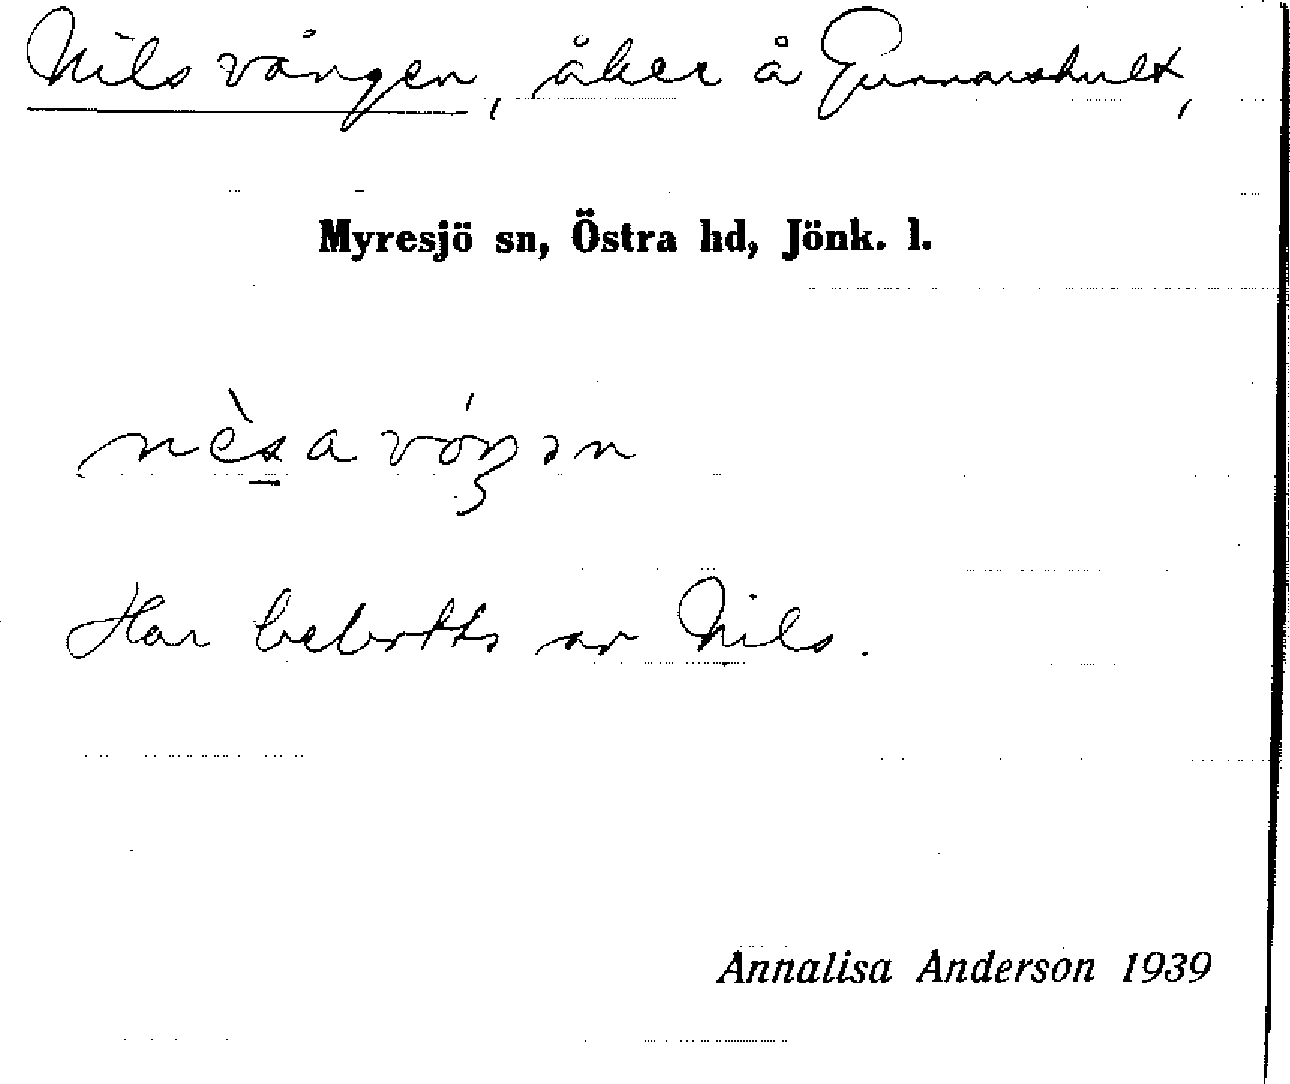 Nilsvången, åker å Gunnarshult,
Myresjö sn, Östra hd, Jönk. l.
nèsa vóŋən
Har bebotts av Nils.
Annalisa Anderson 1939